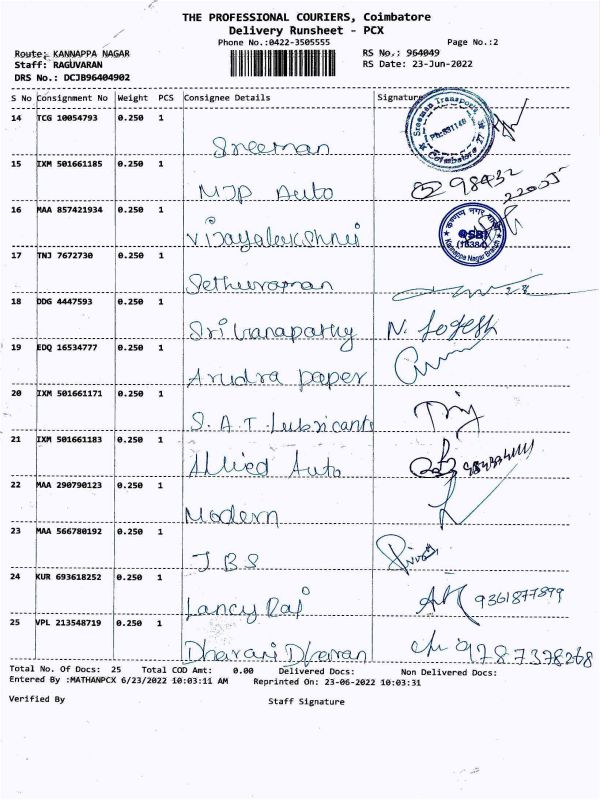 THE PROFESSIONAL COURIERS, Coimbatore
Delivery Runsheet - PCX
Phone No.:0422-3505555 Page No.:2
Route: KANNAPPA NAGAR RS No.: 964049
Staff: RAGUVARAN RS Date: 23-Jun-2022
DRS No.: DCJB96404902
S No Consignment No Weight PCS Consignee Details Signature
14 TCG 10054793 0.250 1
Sreeman
Sreeman Transports
Coimbatore
15 IXM 501661185 0.250 1
MJP Auto
98432
22005
16 MAA 857421934 0.250 1
Vijayalekshmi
कण्णप्प नगर शाखा
SBI
(16384)
Kannappa Nagar Branch
17 TNJ 7672730 0.250 1
Sethuraman
18 DDG 4447593 0.250 1
Sri Ganapathy N. Logesh
19 EDQ 16534777 0.250 1
Arudra paper
20 IXM 501661171 0.250 1
S.A.T. Lubricants
21 IXM 501661183 0.250 1
Allied Auto
22 MAA 290790123 0.250 1
Modern
23 MAA 566780192 0.250 1
JBS
24 KUR 693618252 0.250 1
Lancy Raj 9361877899
25 VPL 213548719 0.250 1
Dharani Dharan 9787378268
Total No. Of Docs: 25 Total COD Amt: 0.00 Delivered Docs: Non Delivered Docs:
Entered By :MATHANPCX 6/23/2022 10:03:11 AM Reprinted On: 23-06-2022 10:03:31
Verified By Staff Signature